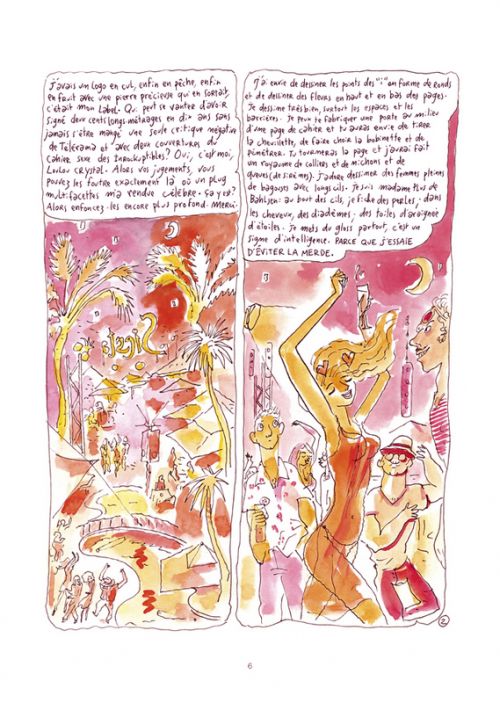 J'avais un logo en cul, enfin en pêche, enfin
en fruit avec une pierre précieuse qui en sortait
c'était mon label. Qui peut se vanter d'avoir
signé deux cents longs métrages en dix ans sans
jamais s'être mangé une seule critique négative
de Télérama et avec deux couvertures du
cahier sexe des Inrockuptibles? Oui, c'est moi,
Loulou Crystal. Alors vos jugements, vous
pouvez les foutre exactement là où un plug
multifacettes m'a rendue célèbre. Ça y est?
Alors enfoncez-les encore plus profond. Merci.
J'ai envie de dessiner les points des "i" en forme de ronds
et de dessiner des fleurs en haut et en bas des pages.
Je dessine très bien, surtout les espaces et les
barrières. Je peux te fabriquer une porte au milieu
d'une page de cahier et tu auras envie de tirer
la chevillette, de faire choir la bobinette et de
pénétrer. Tu tourneras la page et j'aurai fait
un royaume de colliers et de nichons et de
queues (de sirènes). J'adore dessiner des femmes pleines
de bagouses avec longs cils. Je suis madame plus de
Bahlsen: au bout des cils, je fiche des perles; dans
les cheveux, des diadèmes; des toiles d'araignée
d'étoiles. Je mets du gloss partout, c'est un
signe d'intelligence. PARCE QUE J'ESSAIE
D'ÉVITER LA MERDE.
2
6